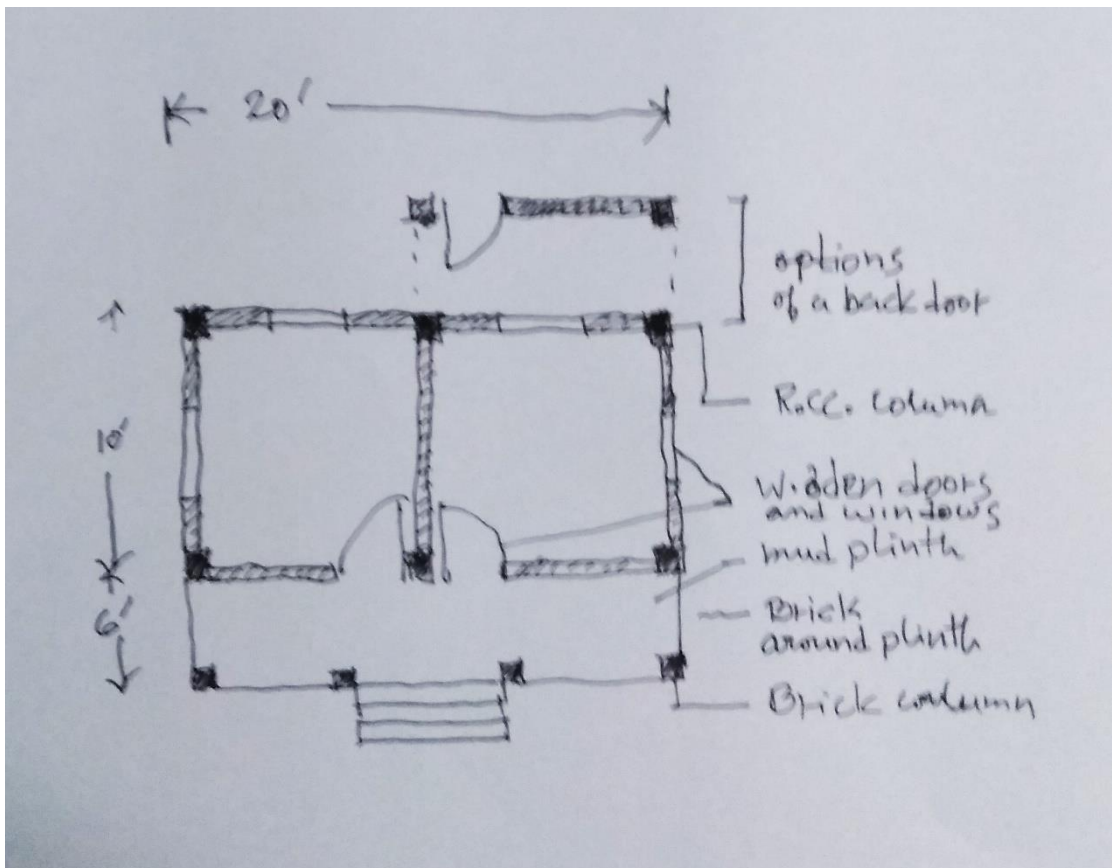 20'
options
of a back door
10'
R.CC. Column
Wooden doors
and windows
mud plinth
6'
Brick
around plinth
Brick column